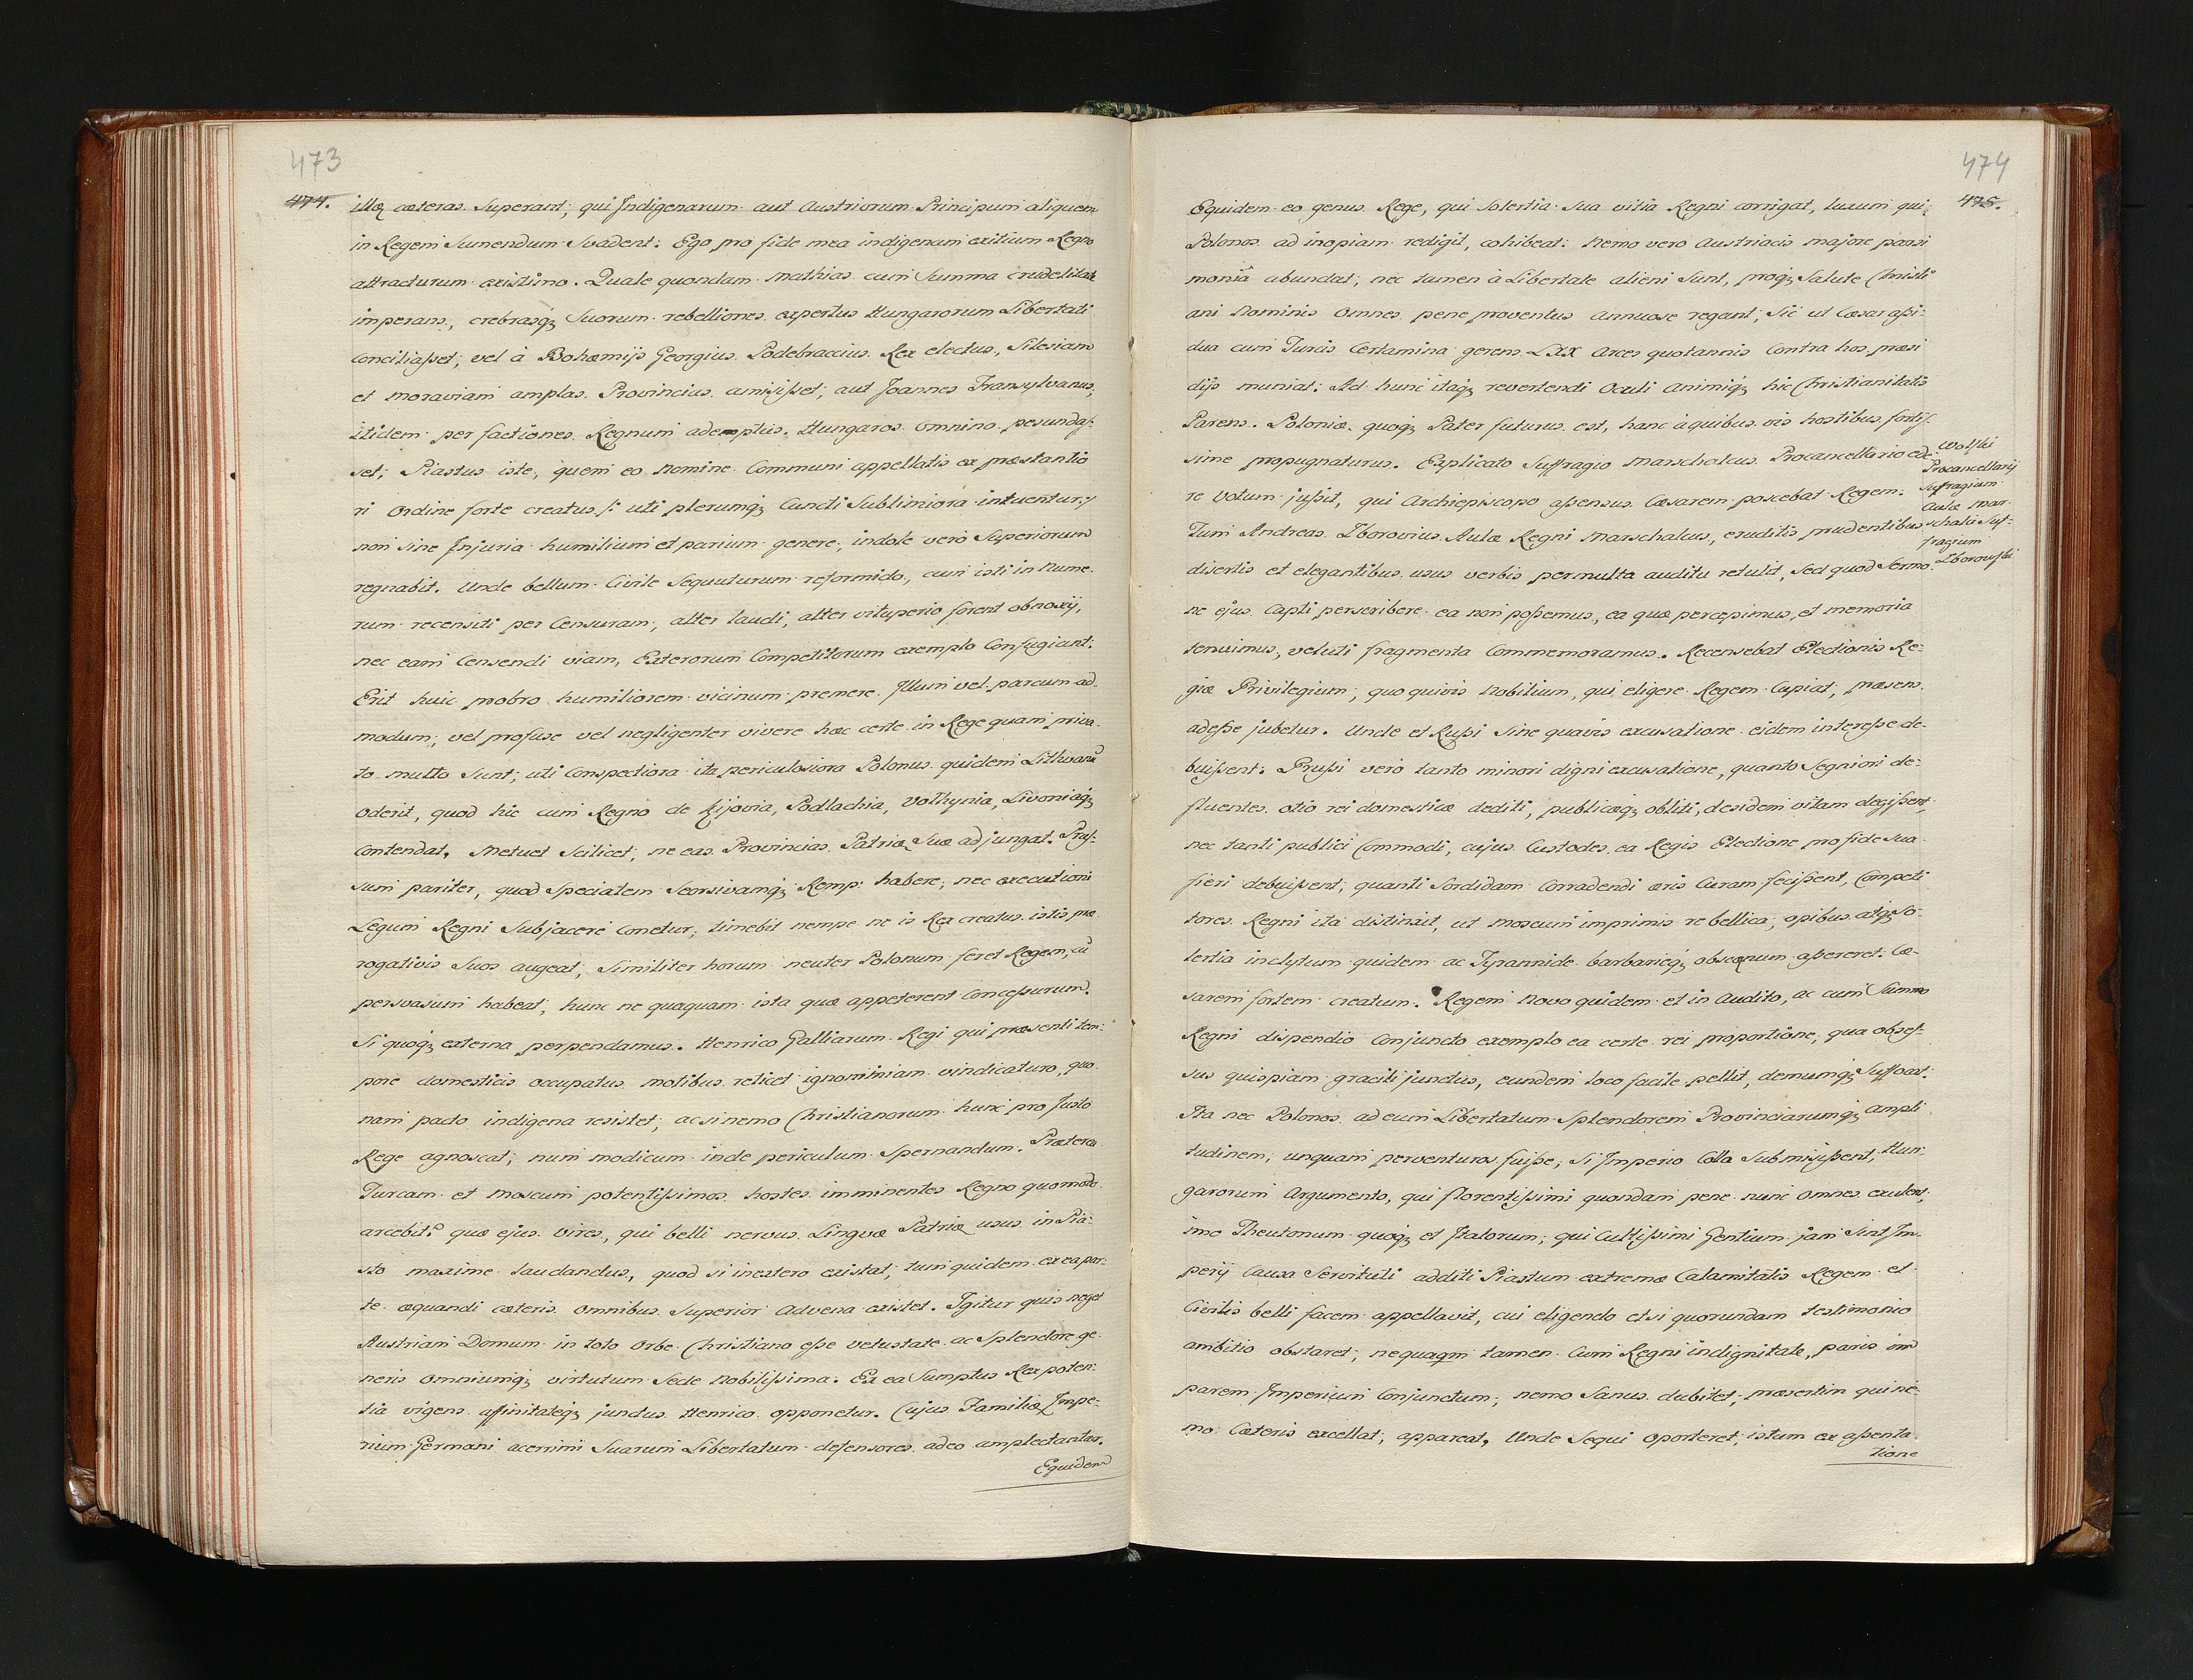 473
474.
illæ cæteras Superant; qui Indigenarum aut Austriorum Principum aliquem
in Regem Sumendum Svadent. Ego pro fide mea indigenam exitium Regno
attracturum existimo. Quale quondam Mathias cum Summa crudelitate
imperans, crebrasq; Suorum rebelliones expertus Hungarorum Libertati
Conciliasset; vel à Bohæmijs Georgius Podebraccius Rex electus, Silesiam
et Moraviam amplas Provincias amisisset; aut Joannes Transylvanus,
itidem per factiones Regnum ademptus Hungaros omnino pesundas-
set; Piastus iste, quem eo Nomine Communi appellatis ex præstantio
ri Ordine forte creatus /: uti plerumq; Cuncti Sublimiora intuentur:/
non sine Injuria humilium et parium genere, indole verò Superiorum
regnabit. Unde bellum Civile Sequuturum reformido, cum isti in Nume-
rum recensiti per Censuram, alter laudi, alter vituperio forent obnoxij,
nec eam Censendi viam, Exterorum Competitorum exemplo Confugiant.
Erit huic probro humiliorem vicinum premere. Illum vel parcum ad-
modum, vel profuse vel negligenter vivere hæc certe in Rege quam priva-
to multo Sunt, uti Conspectiora ita periculosiora Polonus quidem Lithvanũ
Oderit, quod hic cum Regno de Kijovia, Podlachia, Volhynia, Livoniaq;
Contendat. Metuet Scilicet, ne eas Provincias Patriæ Suæ adjungat. Prus-
sum pariter, quod Specialem Seorsivamq; Remp: habere, nec executioni
Legum Regni Subjacere Conetur, timebit nempe ne is Rex creatus istis præ-
rogativis Suos augeat, Similiter horum neuter Polonum feret Regem, cũ
persvasum habeat, hunc ne quaquam ista quæ appeterent Concessurum.
Si quoq; externa perpendamus. Henrico Galliarum Regi qui præsenti tem-
pore domesticis occupatus motibus reticet ignominiam vindicaturo, quo-
nam pacto indigena resistet, ac si nemo Christianorum hunc pro Justo
Rege agnoscat, num modicum inde periculum Spernandum. Præterea
Turcam et Moscum potentissimos hostes imminentes Regno quomodo
arcebit? quæ ejus vires, qui belli nervus. Lingvæ Patriæ usus in Pia-
sto maxime laudandus, quod si in extero existat, tum quidem ex ea par-
te æquandi cæteris omnibus Superior Advena existet. Igitur quis neget
Austriam Domum in toto Orbe Christiano esse vetustate ac Splendore ge-
neris omniumq; virtutum Sede Nobilissima. Ex ea Sumptus Rex poten-
tia vigens affinitateq; junctus Henrico opponetur. Cujus Familiæ Impe-
rium Germani acerrimi Suarum Libertatum defensores adeo amplectantur.
Equidem
474
475.
Equidem eo genus Rege, qui Solertia Sua vitia Regni corrigat, luxum qui
Polonos ad inopiam redigit, cohibeat. Nemo vero Austriacis majore parsi
moniâ abundat, nec tamen à Libertate alieni Sunt, proq; Salute Christi
ani Nominis Omnes pene proventus Annuose regant, Sic ut Cæsar assi-
dua cum Turcis Certamina gerens LXX Arces quotannis Contra hos præsi
dijs muniat. Ad hunc itaq; revertendi Oculi Animiq; hic Christianitatis
Parens. Poloniæ quoq; Pater futurus est, hanc à quibus vis hostibus fortis-
sime propugnaturus. Explicato Suffragio Marschalcus Procancellario ede-
re Votum jussit, qui Archiepiscopo assensus Cæsarem poscebat Regem.
Tum Andreas Zborovius Aulæ Regni Marschalcus, eruditis prudentibus
disertis et elegantibus usus verbis permulta auditu retulit, Sed quod Sermo-
ne ejus Capti perscribere ea non possemus, ea quæ percepimus, et memoria
tenuimus, veluti fragmenta Commemoramus. Recensebat Electionis Re-
giæ Privilegium, quo quivis Nobilium, qui eligere Regem Cupiat, præsens
adesse jubetur. Unde et Russi Sine quavis excusatione eidem interesse de-
buissent. Prussi verò tanto minori digni excusatione, quanto Segniori de-
fluentes otio rei domesticæ dediti, publicæq; obliti, desidem vitam degissent,
nec tanti publici Commodi, cujus Custodes ea Regis Electione pro fide Sua
fieri debuissent, quanti Sordidam Corradendi æris Curam fecissent, Competi
tores Regni ita distinxit, ut Moscum imprimis re bellica, opibus atq; So-
lertia inclytum quidem ac Tyrannide barbarieq; obscænum assereret. Cæ-
sarem fortem creatum. Regem Novo quidem et in Audito, ac cum Summo
Regni dispendio Conjuncto exemplo ea certe rei proportione, qua obses-
sus quispiam gracili junctus, eundem loco facile pellit, demumq; Suffocat.
Ita nec Polonos ad eum Libertatum Splendorem Provinciarumq; ampli
tudinem, unquam perventuros fuisse, Si Imperio Colla Submisissent, Hun-
garorum Argumento, qui florentissimi quondam pene nunc Omnes exulent,
imo Theutonum quoq; et Italorum, qui Cultissimi Gentium jam Sint Im-
perij Causa Servituti additi Piastum extremæ Calamitatis Regem et
Civilis belli facem appellavit, cui eligendo etsi quorundam testimonio
ambitio obstaret, nequaqm tamen Cum Regni indignitate, paris im
parem Imperium Conjunctum, nemo Sanus dubitet, præsertim qui ne-
mo Cæteris excellat, appareat, Unde Sequi oporteret, istum ex assenta-
tione
Wolski
Procancellarij
Suffragium
Aulæ Mar-
schalci Suf-
fragium
Zborowski